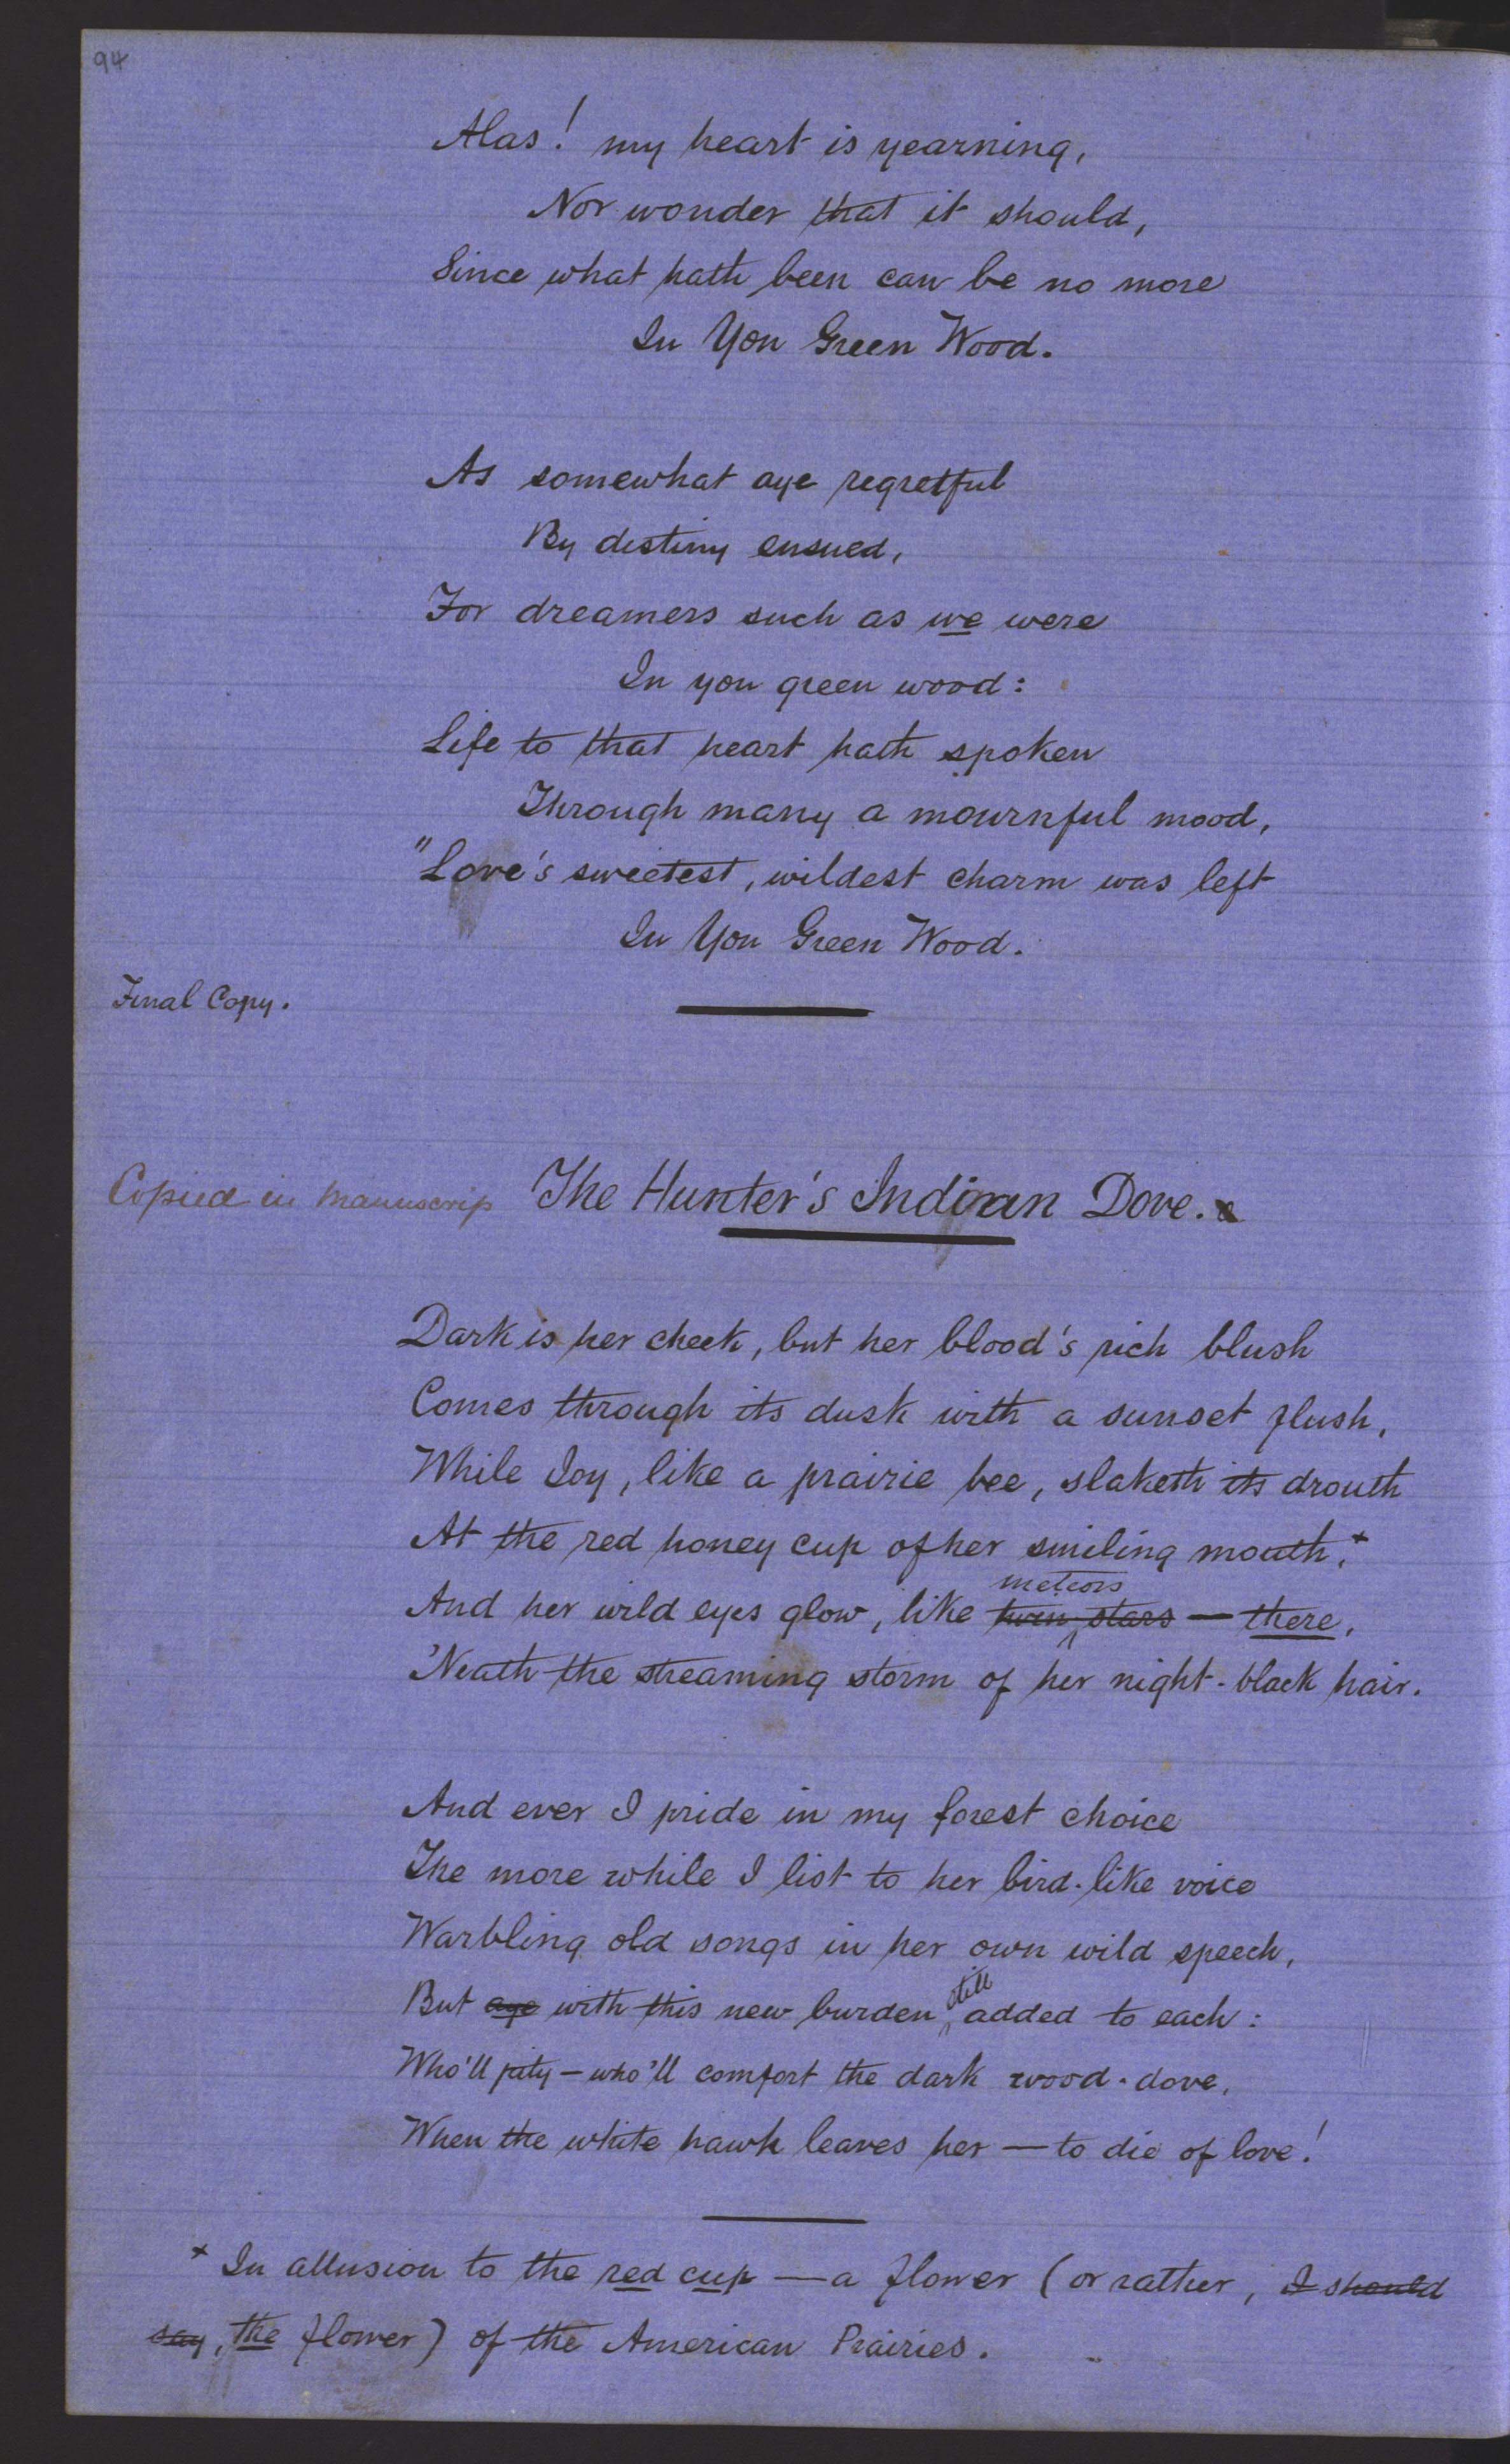 94
Alas! my heart is yearning,
Nor wonder that it should,
Since what hath been can be no more
In Yon Green Wood.
As somewhat aye regretful
By destiny ensued,
For dreamers such as we were
In yon green wood:
Life to that heart hath spoken
Through many a mournful mood,
"Love's sweetest, wildest charm was left
In Yon Green Wood.
Final Copy.
Copied in manuscrip The Hunter's Indian Dove. x
Dark is her cheek, but her blood's rich blush
Comes through its dusk with a sunset flush,
While Joy, like a prairie bee, slaketh its drouth
At the red honey cup of her smiling mouth,+
meteors
And her wild eyes glow, like twin stars — there,
'Neath the streaming storm of her night-black hair.
And ever I pride in my forest choice
The more while I list to her bird-like voice
Warbling old songs in her own wild speech,
still
But aye with this new burden added to each:
Who'll pity — who'll comfort the dark wood-dove,
When the white hawk leaves her — to die of love!
+ In allusion to the red cup — a flower (or rather, I should
say, the flower) of the American Prairies.